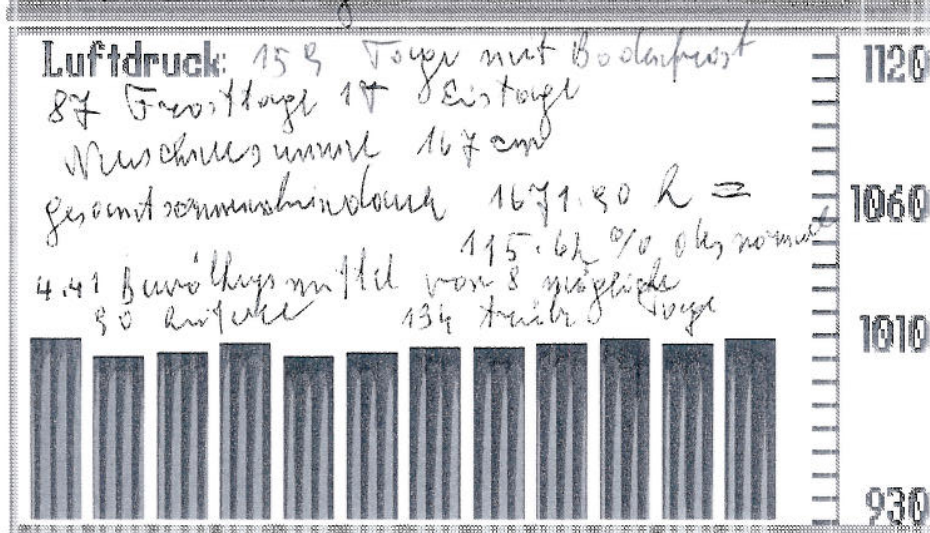 Luftdruck: 159 Tage mit Bodenfrost
1120
87 Frosttage 17 Eistage
Neuschneesumme 167 cm
gesamtsonnenscheindauer 1671.90 h =
1060
115.62 % des normal
4.41 Bewölkungsmittel von 8 mögliche
90 heitere 134 trübe Tage
1010
930